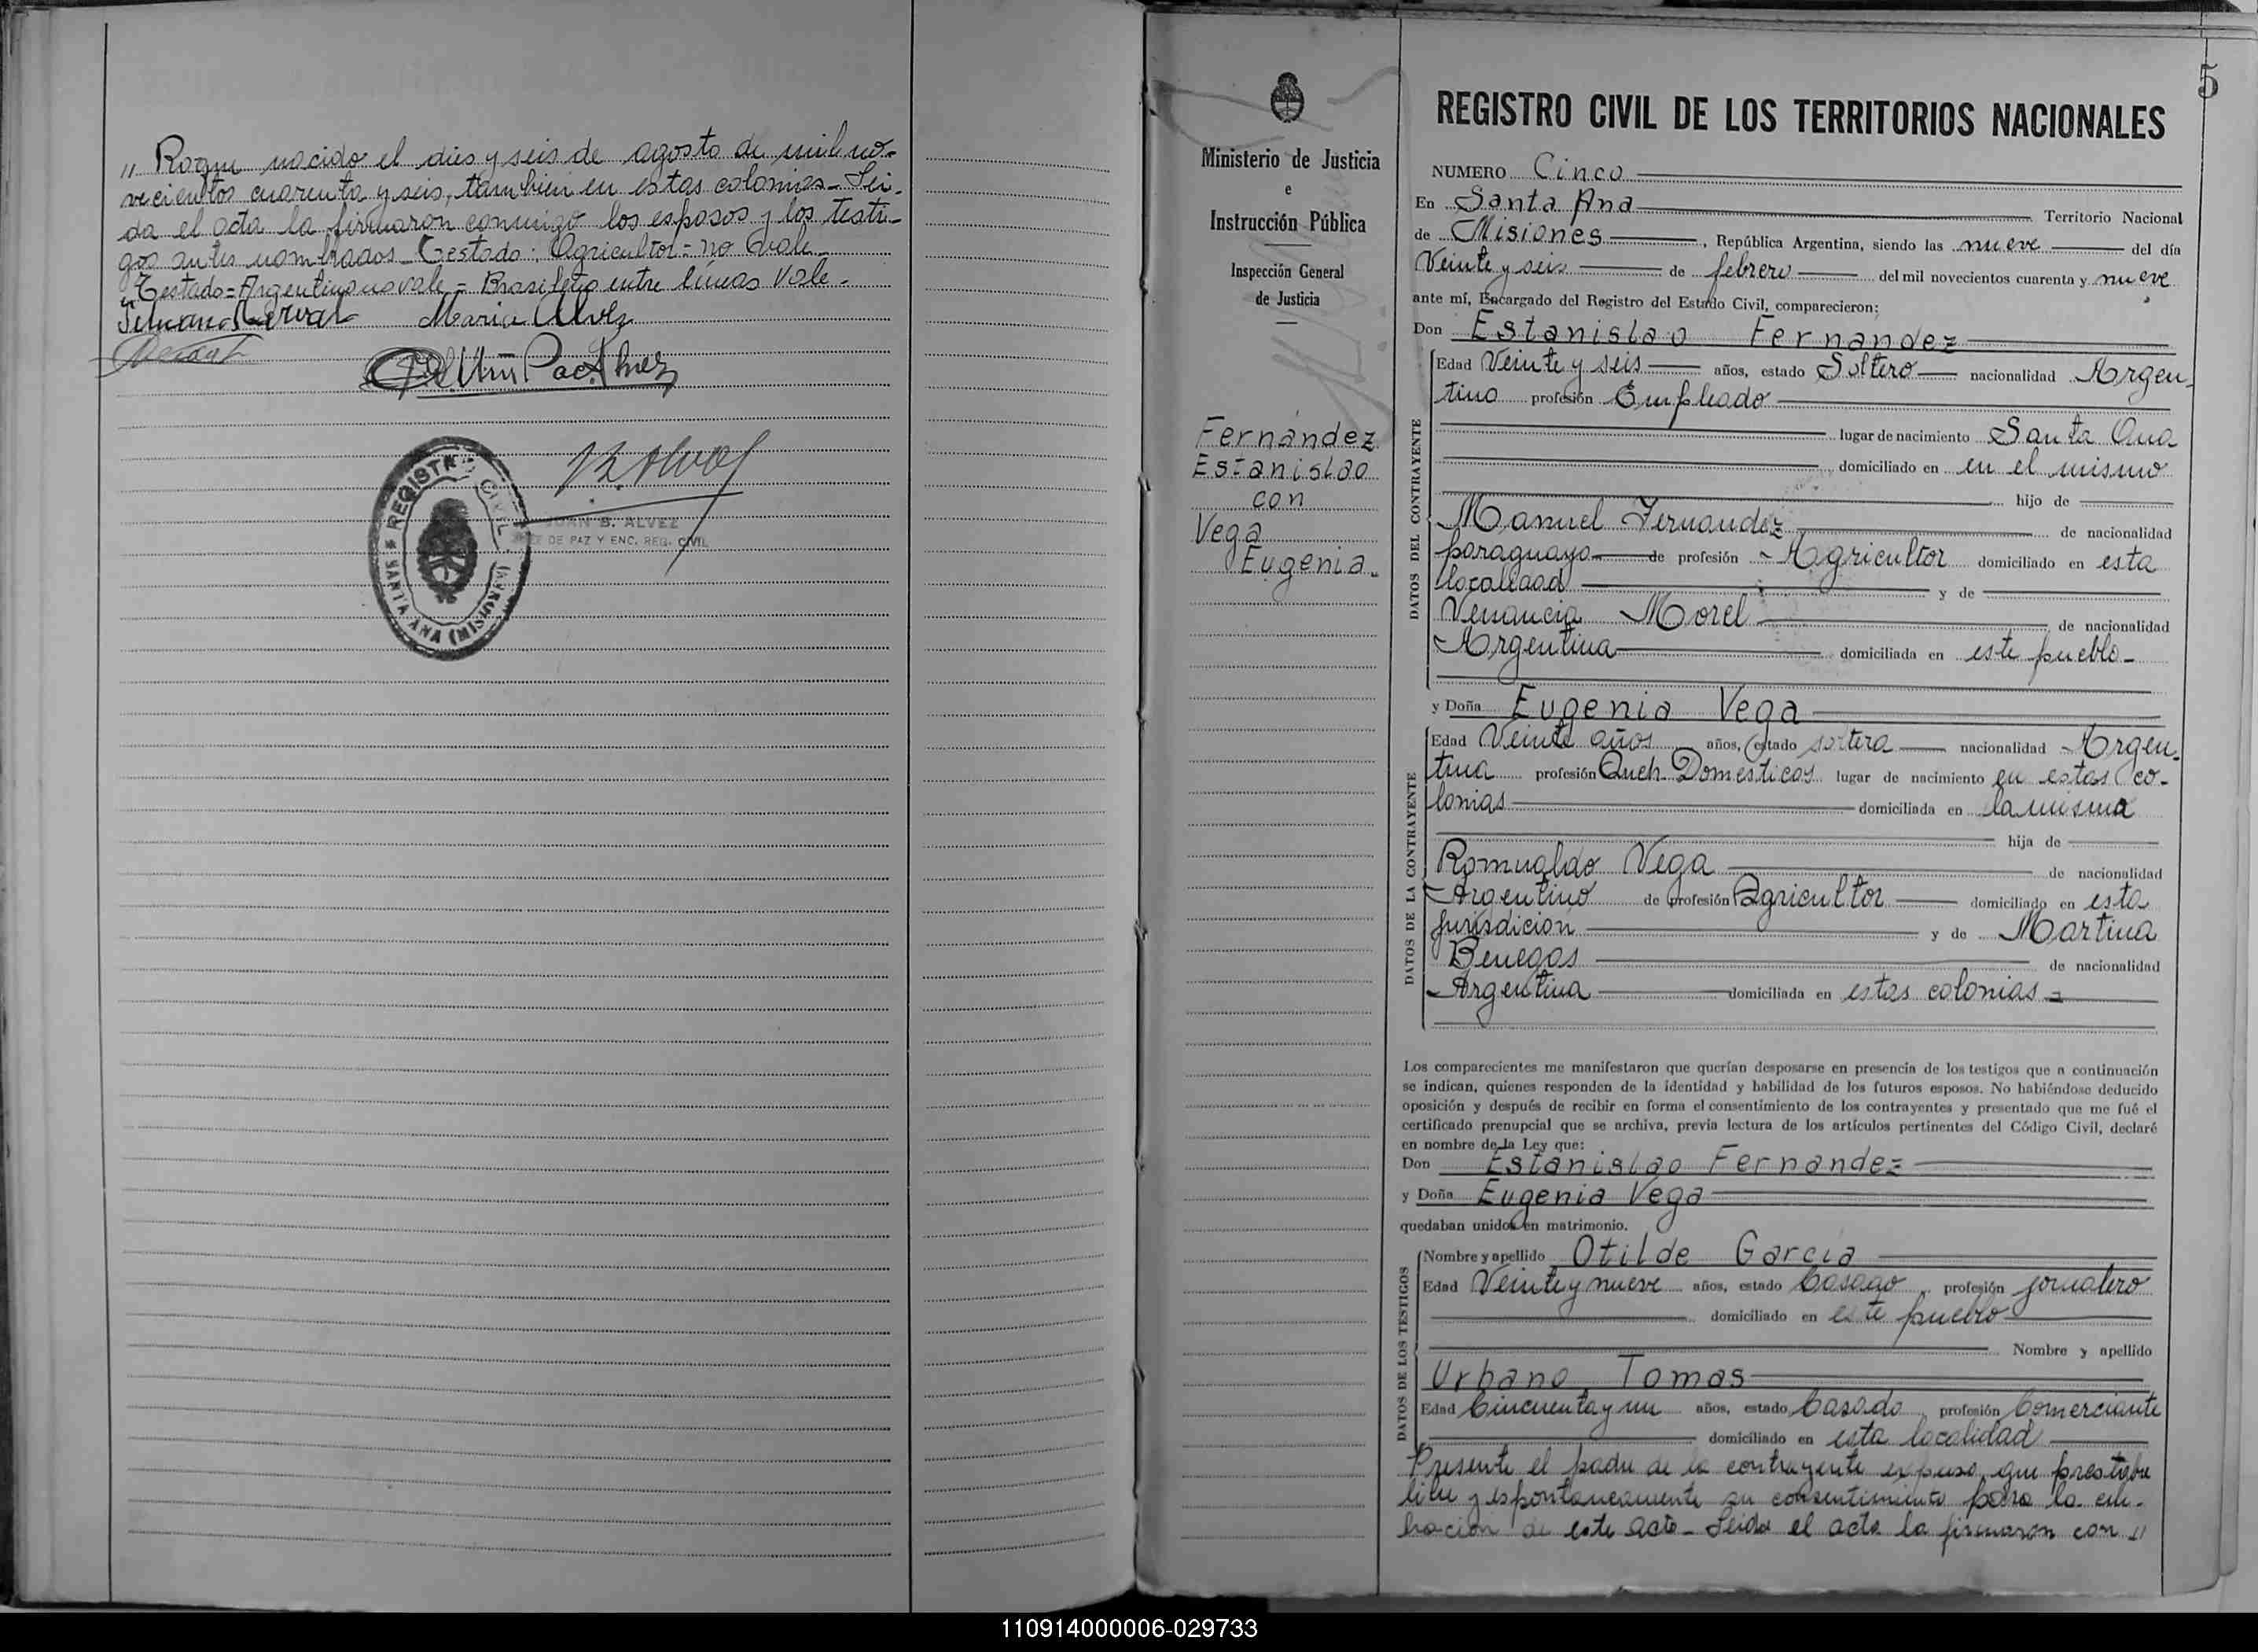 " Roque nacido el dies y seis de agosto de mil no-
vecientos cuarenta y seis, tambien en estas colonias - Lei-
da el acta la firmaron conmigo los esposos y los testi-
gos antes nombrados - Testado: Agricultor = no vale
" Testado = Argentino no vale = Brasileño entre lineas vale -
Maria Alvez
REGISTRO CIVIL
SANTA ANA (MISIONES)
JUAN B. ALVEZ
JUEZ DE PAZ Y ENC. REG. CIVIL
5
Ministerio de Justicia
e
Instrucción Pública
Inspección General
de Justicia
Fernández
Estanislao
con
Vega
Eugenia.
REGISTRO CIVIL DE LOS TERRITORIOS NACIONALES
NUMERO Cinco
En Santa Ana Territorio Nacional
de Misiones, República Argentina, siendo las nueve del día
Veinte y seis de febrero del mil novecientos cuarenta y nueve
ante mí, Encargado del Registro del Estado Civil, comparecieron:
Don Estanislao Fernandez
DATOS DEL CONTRAYENTE
Edad Veinte y seis años, estado Soltero nacionalidad Argen-
tino profesión Empleado
lugar de nacimiento Santa Ana
domiciliado en en el mismo
hijo de
Manuel Fernandez de nacionalidad
paraguayo de profesión Agricultor domiciliado en esta
localidad y de
Venancia Morel de nacionalidad
Argentina domiciliada en este pueblo -
y Doña Eugenia Vega
DATOS DE LA CONTRAYENTE
Edad Veinte años años, estado soltera nacionalidad Argen-
tina profesión Queh. Domesticos lugar de nacimiento en estas co-
lonias domiciliada en la misma
hija de
Romualdo Vega de nacionalidad
Argentino de profesión Agricultor domiciliado en esta
Jurisdicion y de Martina
Benegas de nacionalidad
Argentina domiciliada en estas colonias =
Los comparecientes me manifestaron que querían desposarse en presencia de los testigos que a continuación
se indican, quienes responden de la identidad y habilidad de los futuros esposos. No habiéndose deducido
oposición y después de recibir en forma el consentimiento de los contrayentes y presentado que me fué el
certificado prenupcial que se archiva, previa lectura de los artículos pertinentes del Código Civil, declaré
en nombre de la Ley que:
Don Estanislao Fernandez
y Doña Eugenia Vega
quedaban unidos en matrimonio.
DATOS DE LOS TESTIGOS
Nombre y apellido Otilde Garcia
Edad Veinte y nueve años, estado Casado profesión jornalero
domiciliado en este pueblo
Nombre y apellido
Urbano Tomas
Edad Cincuenta y un años, estado Casado profesión Comerciante
domiciliado en esta localidad
Presente el padre de la contrayente expuso, que prestaba
libre y espontaneamente su consentimiento para la cele-
bracion de este acto - Leida el acta la firmaron con "
110914000006-029733